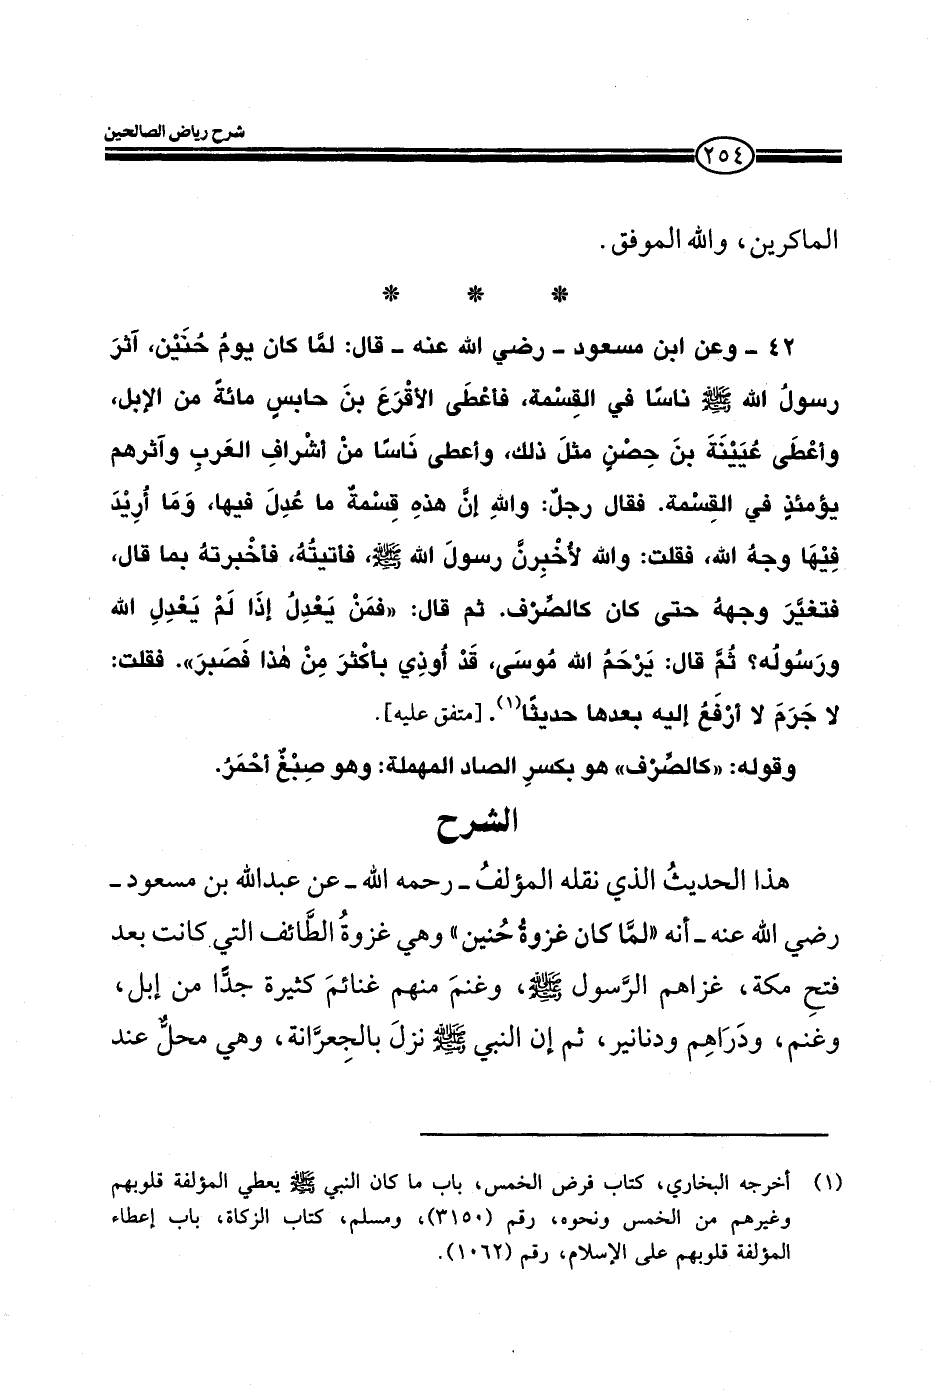 شرح رياض الصالحين
٢٥٤
الماكرين، والله الموفق.
* * *
٤٢ ـ وعن ابن مسعود ـ رضي الله عنه ـ قال: لمَّا كان يومُ حُنَيْن، آثرَ
رسولُ الله ﷺ ناسًا في القِسْمة، فأعْطَى الأقْرَعَ بنَ حابسٍ مائةً من الإبل،
وأعْطَى عُيَيْنَةَ بنَ حِصْنٍ مثلَ ذلك، وأعطى نَاسًا منْ أشْرافِ العَربِ وآثرهم
يؤمئذٍ في القِسْمة. فقال رجلٌ: واللهِ إنَّ هذهِ قِسْمةٌ ما عُدِلَ فيها، وَمَا أُرِيْدَ
فِيْهَا وجهُ الله، فقلت: والله لأُخْبِرنَّ رسولَ الله ﷺ، فأتيتُهُ، فأخْبرتهُ بما قال،
فتغيَّرَ وجههُ حتى كان كالصِّرْف. ثم قال: «فمَنْ يَعْدِلُ إذَا لَمْ يَعْدِلِ الله
ورَسُولُه؟ ثُمَّ قال: يَرْحَمُ الله مُوسَى، قَدْ أُوذِي بأكْثرَ مِنْ هٰذا فَصَبرَ». فقلت:
لا جَرَمَ لا أرْفَعُ إليه بعدها حديثًا(١). [متفق عليه].
وقوله: «كالصِّرْف» هو بكسرِ الصاد المهملة: وهو صِبْغٌ أحْمَرُ.
الشرح
هذا الحديثُ الذي نقله المؤلفُ ـ رحمه الله ـ عن عبدالله بن مسعود ـ
رضي الله عنه ـ أنه «لمَّا كان غزوةُ حُنين» وهي غزوةُ الطَّائف التي كانت بعد
فتحِ مكة، غزاهم الرَّسول ﷺ، وغنمَ منهم غنائمَ كثيرة جدًّا من إبل،
وغنم، ودَرَاهِم ودنانير، ثم إن النبي ﷺ نزلَ بالجِعرَّانة، وهي محلٌّ عند
(١) أخرجه البخاري، كتاب فرض الخمس، باب ما كان النبي ﷺ يعطي المؤلفة قلوبهم
وغيرهم من الخمس ونحوه، رقم (٣١٥٠)، ومسلم، كتاب الزكاة، باب إعطاء
المؤلفة قلوبهم على الإسلام، رقم (١٠٦٢).